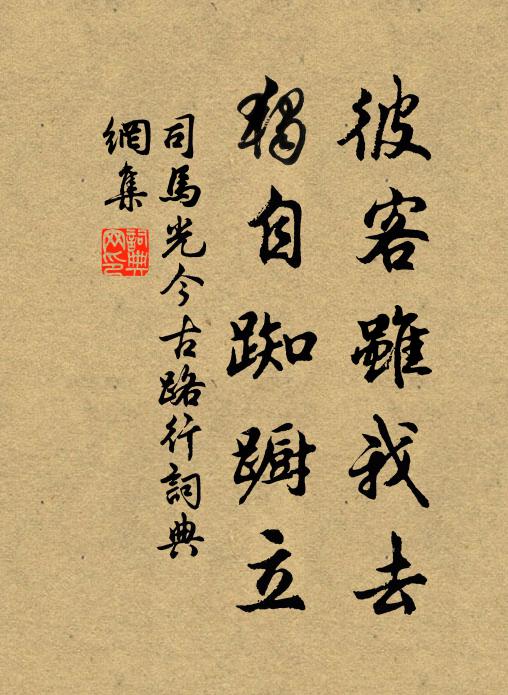 彼客雖我去
獨自踟躕立
司馬光今古路行詞典
網集
詞典網印